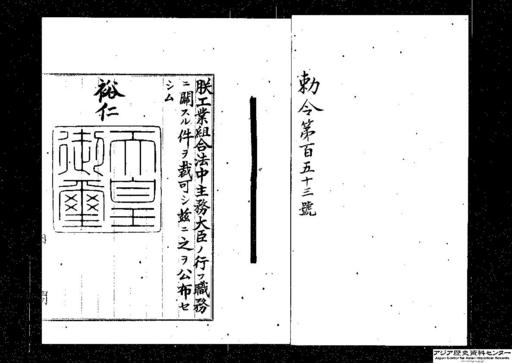 勅令第百五十三號
朕工業組合法中主務大臣ノ行フ職務
ニ關スル件ヲ裁可シ茲ニ之ヲ公布セ
シム
裕仁
天皇
御璽
アジア歴史資料センター
Japan Center for Asian Historical Records